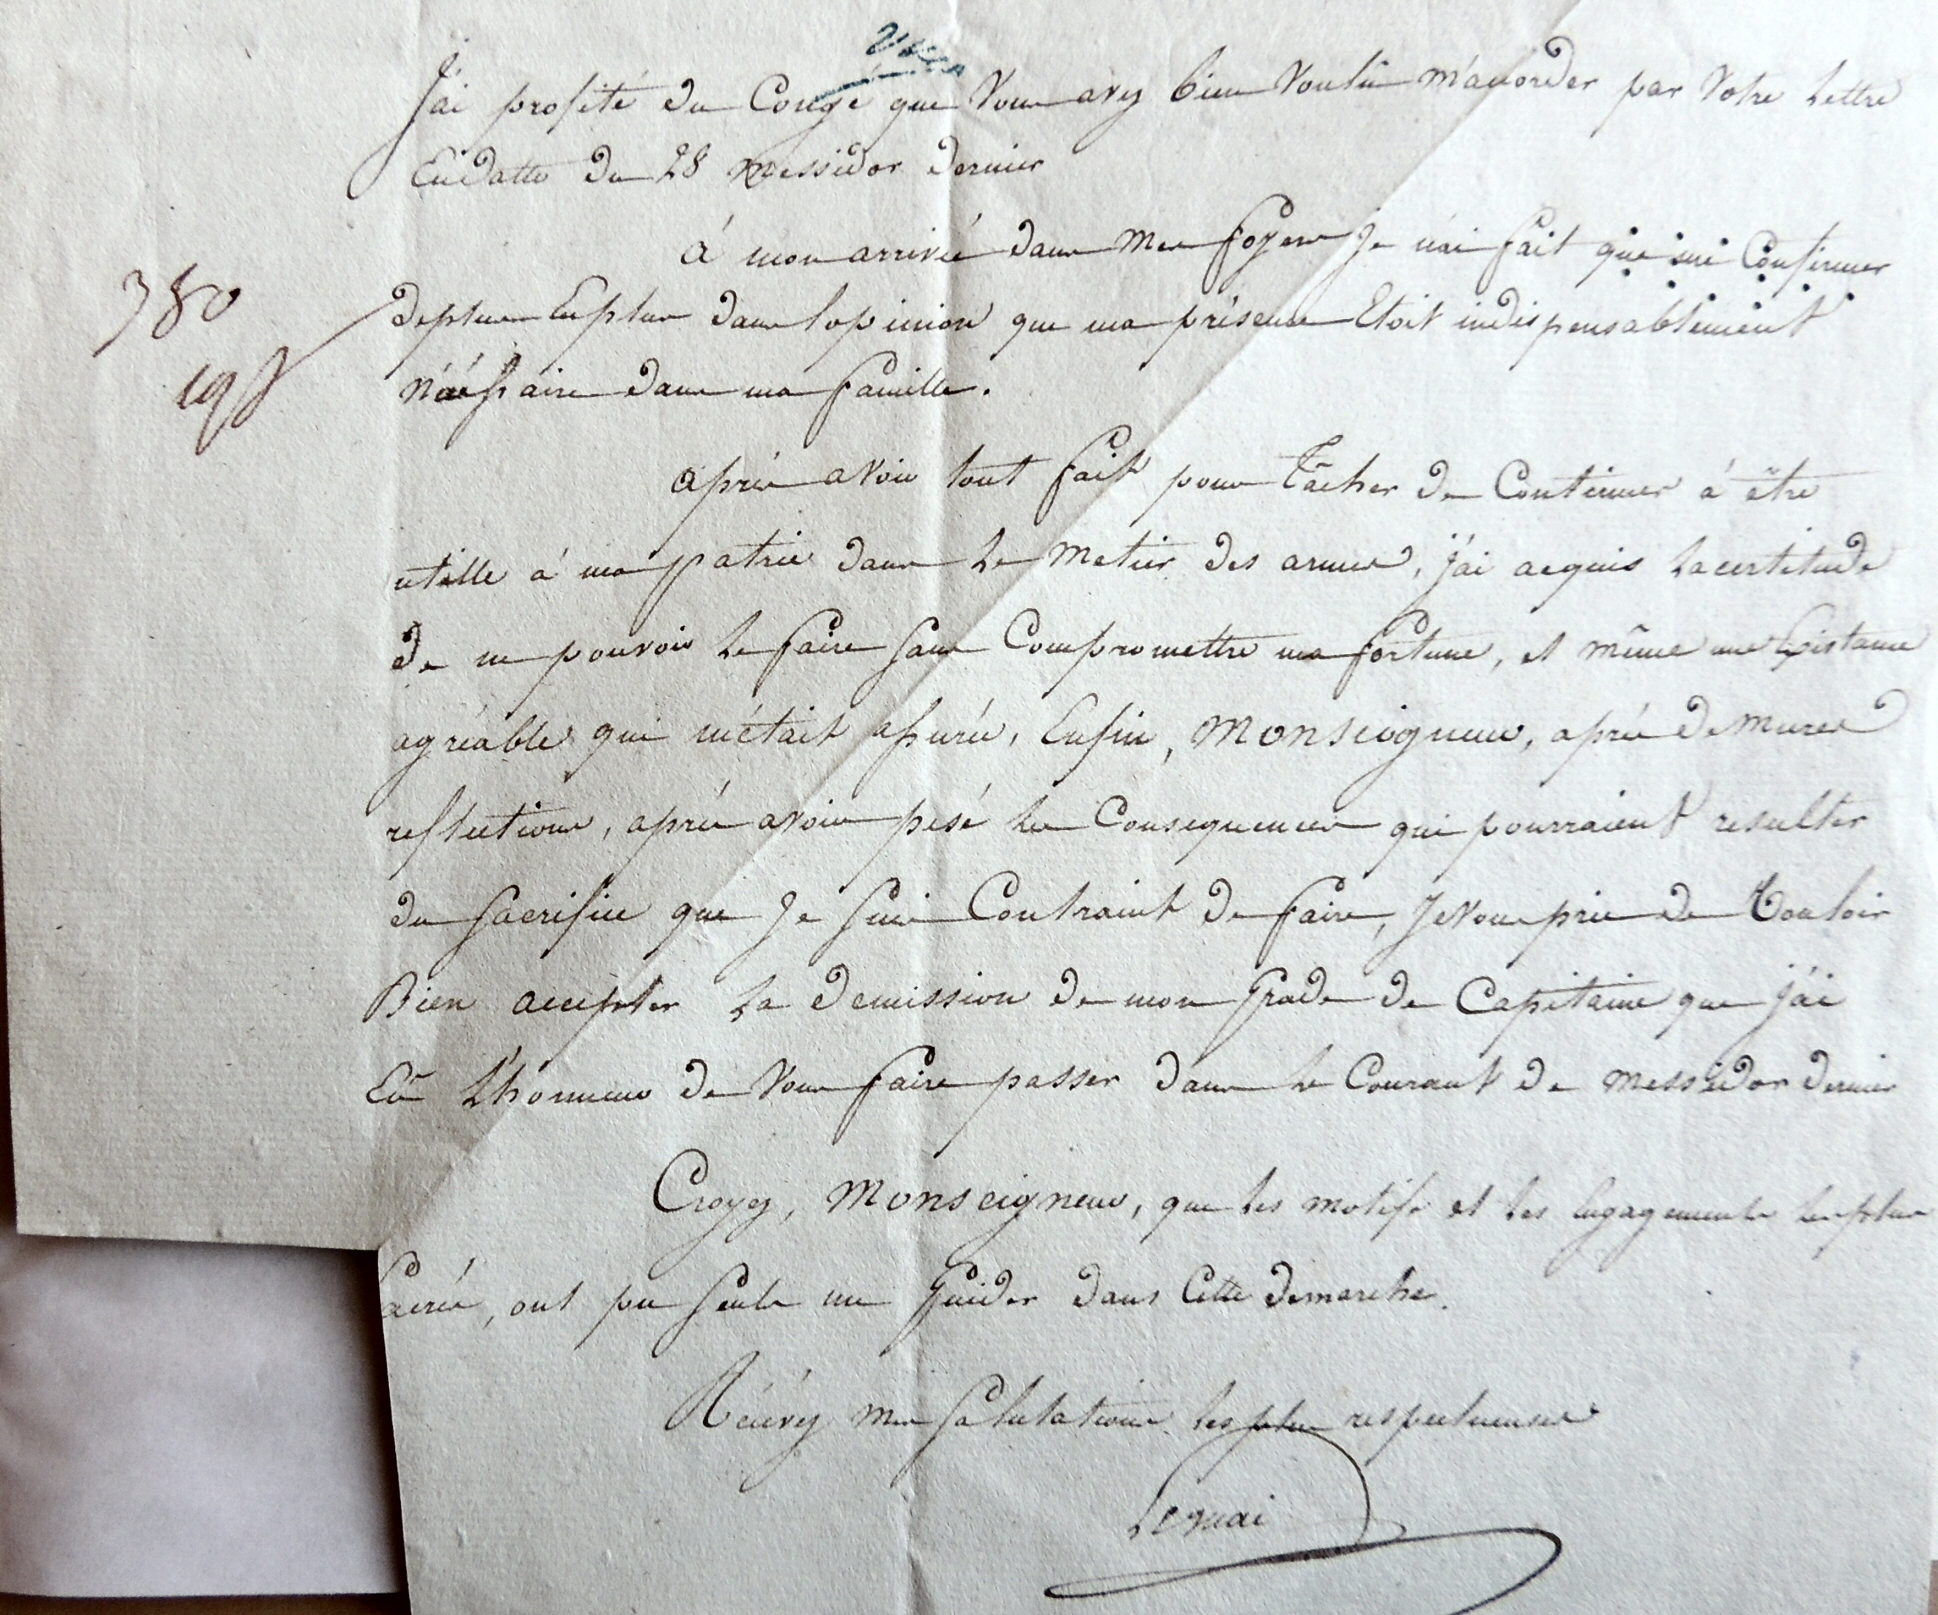 J'ai profité du Congé que Vous avez bien Voulû m'accorder par Votre Lettre
En datte du 28 Messidor dernier
à mon arrivée dans Mes foyers Je n'ai fait que me Confirmer
380
deplus Enplus dans lopinion que ma présence Etoit indispensablement
198
nécéssaire dans ma famille.
après avoir tout fait pour Tâcher de Continuer à être
utille à ma patrie dans Le Metier des armes, j'ai acquis La certitude
de ne pouvoir Le faire sans Compromettre ma fortune, et même une Existance
agréable qui m'était assurée, Enfin, Monseigneur, après de Mures
reflections, après avoir pesé Les Consequences qui pourraient resulter
du Sacrifice que Je Suis Contraint de faire, Je Vous prie de Vouloir
Bien accepter La demission de mon Grade de Capitaine que j'ai
Eû L'honneur de Vous faire passer dans Le Courant de Messidor dernier
Croyez, Monseigneur, que Les motifs et Les Engagements Les plus
Sacrés, ont pu Seuls me Guider dans Cette demarche.
Récévez Mes Salutations Les plus respectueuses
Lequai